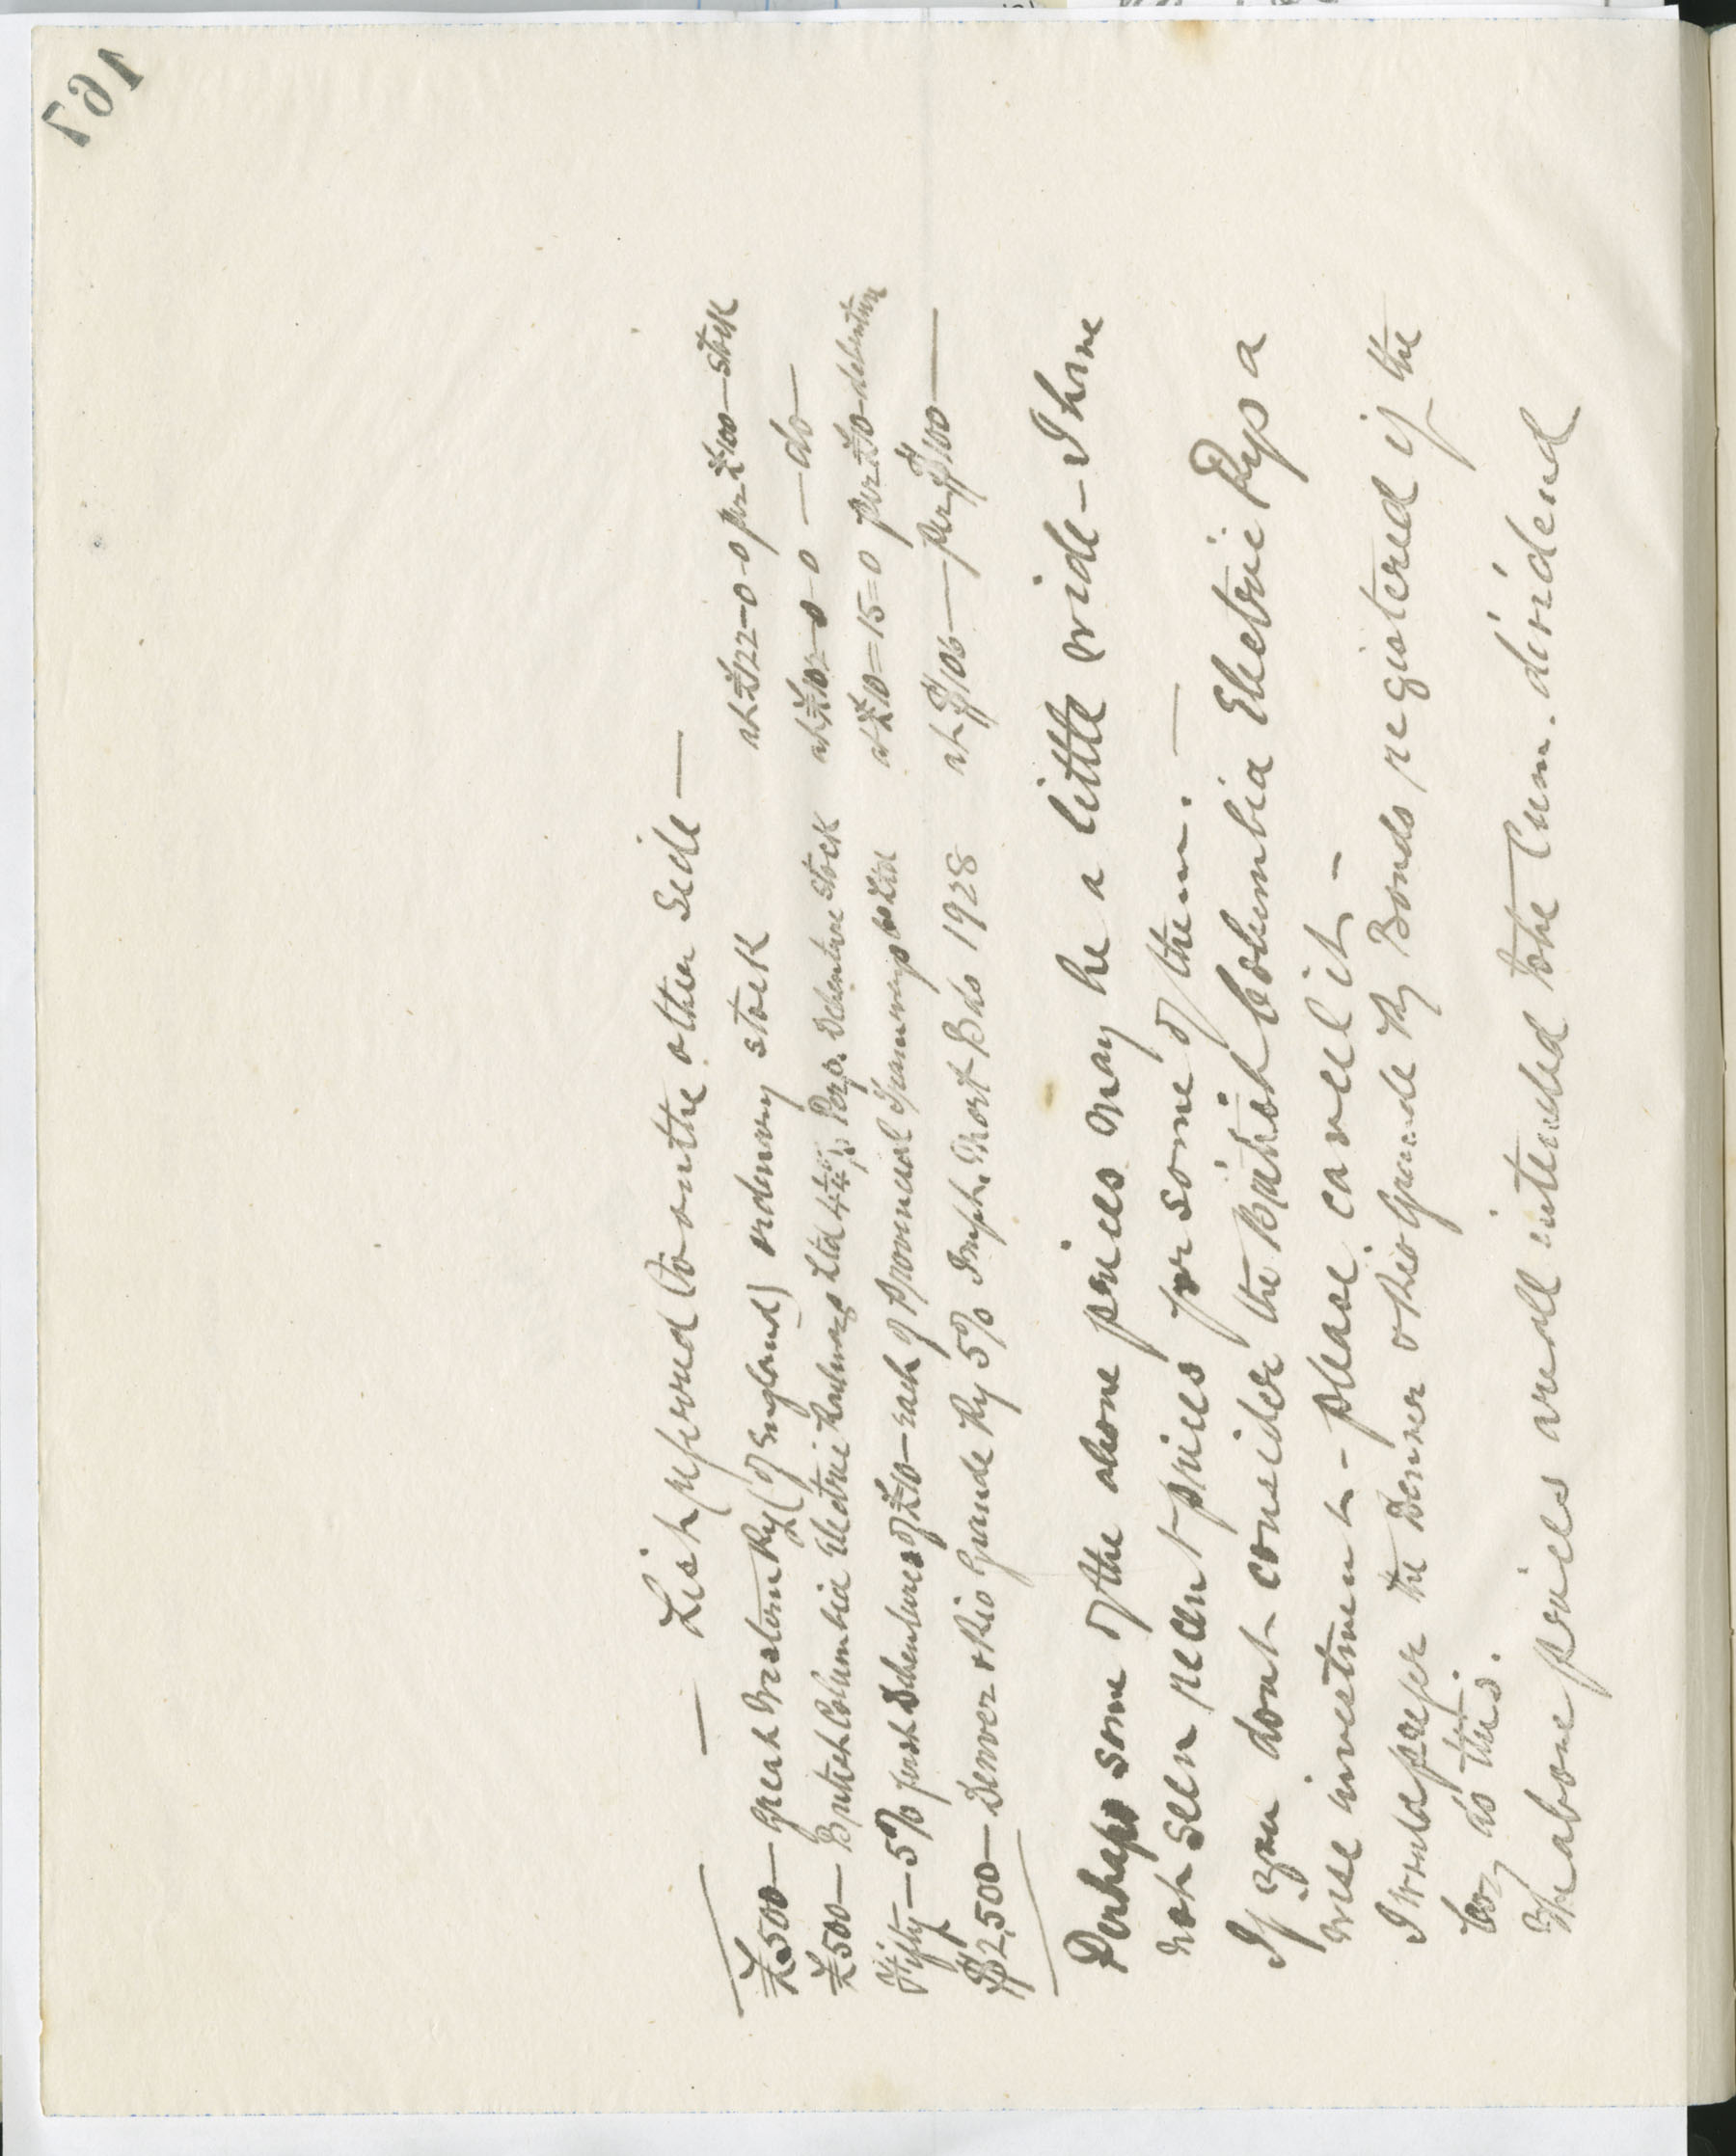 161
— List referred to on the other side —
£500 — Great Western Ry (of England) ordinary stock at £122-0-0 per £100 stock
£500 — British Columbia Electric Railways Ltd 4¼% Perp. Debenture Stock at £102-0-0 — do —
Fifty — 5% first Debentures of £10 — each of Provincial Tramways Co Ltd at £10=15=0 per £10 debenture
$2,500 — Denver & Rio Grande Ry 5% Impt. Mort Bds 1928 at $106 — per $100 —
Perhaps some of the above prices may be a little wide — I have
not seen recent prices for some of them. —
If you dont consider the British Columbia Electric Rys a
wise investment — please cancel it —
I would prefer the Denver & Rio Grande Ry Bonds registered if the
Coy do this.
The above prices are all intended to be Cum. dividend